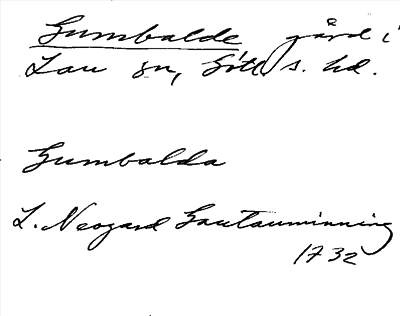 Gumbalde gård i
Lau sn, Gotl. s. hd.
Gumbalda
L. Neogard Gautauminning
1732